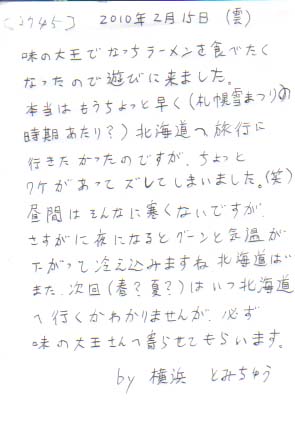 [2745] 2010年2月15日 (雲)
味の大王でなっちラーメンを食べたく
なったので遊びに来ました。
本当はもうちょっと早く(札幌雪まつりの
時期あたり?)北海道へ旅行に
行きたかったのですが、ちょっと
ワケがあってズレてしまいました。(笑)
昼間はそんなに寒くないですが、
さすがに夜になるとグーンと気温が
下がって冷え込みますね 北海道は…
また、次回(春?夏?)はいつ北海道
へ行くかわかりませんが、必ず
味の大王さんへ寄らせてもらいます。
by 横浜 とみちゅう